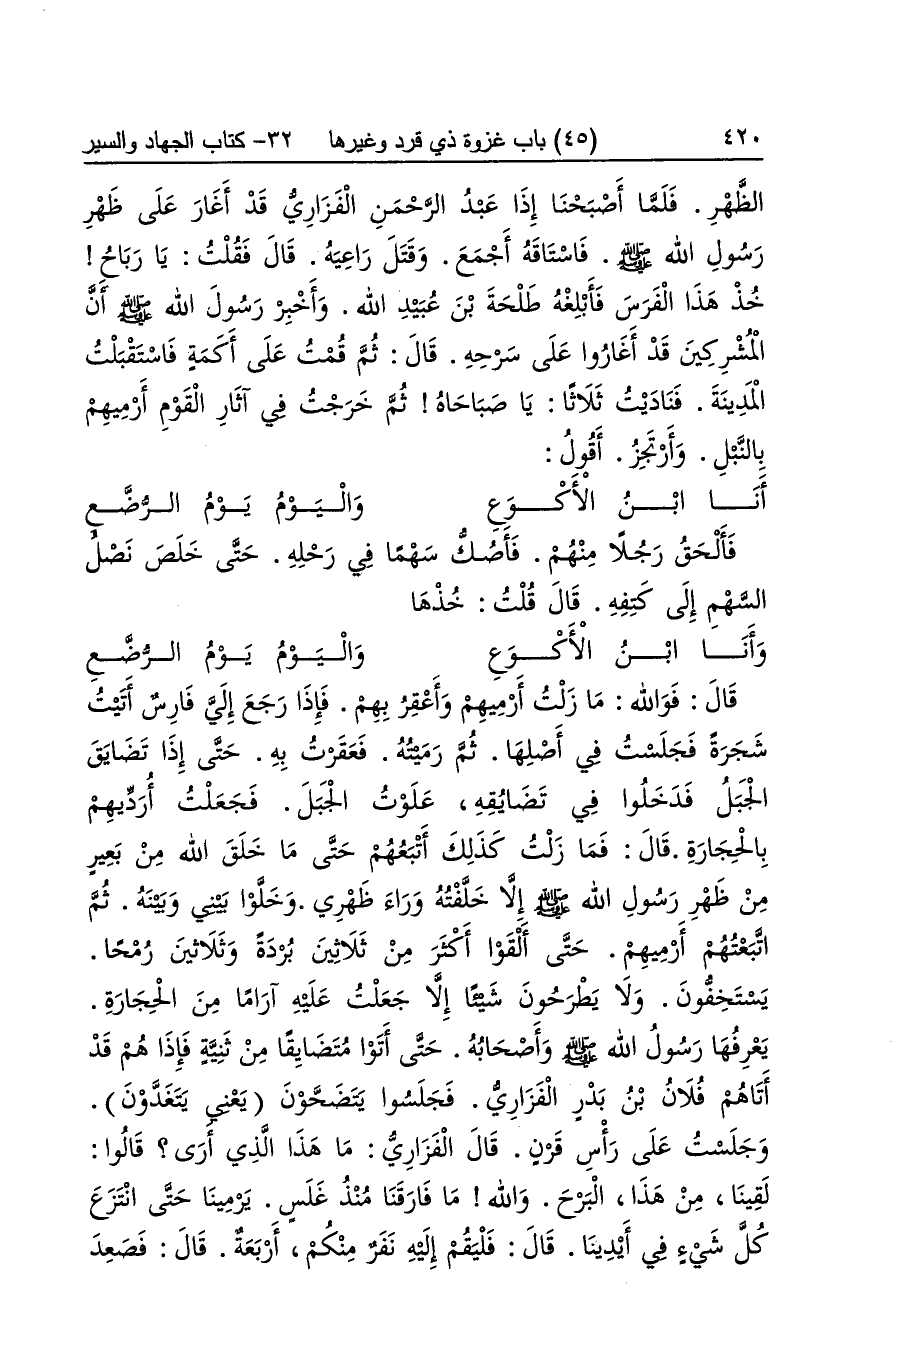 ٤٢٠ (٤٥) باب غزوة ذي قرد وغيرها ٣٢- كتاب الجهاد والسير
الظَّهْرِ . فَلَمَّا أَصْبَحْنَا إِذَا عَبْدُ الرَّحْمَنِ الْفَزَارِيُّ قَدْ أَغَارَ عَلَى ظَهْرِ
رَسُولِ الله ﷺ . فَاسْتَاقَهُ أَجْمَعَ . وَقَتَلَ رَاعِيَهُ . قَالَ فَقُلْتُ : يَا رَبَاحُ !
خُذْ هَذَا الْفَرَسَ فَأَبْلِغْهُ طَلْحَةَ بْنَ عُبَيْدِ الله . وَأَخْبِرْ رَسُولَ الله ﷺ أَنَّ
الْمُشْرِكِينَ قَدْ أَغَارُوا عَلَى سَرْحِهِ . قَالَ : ثُمَّ قُمْتُ عَلَى أَكَمَةٍ فَاسْتَقْبَلْتُ
الْمَدِينَةَ . فَنَادَيْتُ ثَلَاثًا : يَا صَبَاحَاهُ ! ثُمَّ خَرَجْتُ فِي آثَارِ الْقَوْمِ أَرْمِيهِمْ
بِالنَّبْلِ . وَأَرْتَجِزُ . أَقُولُ :
أَنَــا ابْــنُ الْأَكْــوَعِ وَالْـيَـوْمُ يَـوْمُ الـرُّضَّـعِ
فَأَلْحَقُ رَجُلًا مِنْهُمْ . فَأَصُكُّ سَهْمًا فِي رَحْلِهِ . حَتَّى خَلَصَ نَصْلُ
السَّهْمِ إِلَى كَتِفِهِ . قَالَ قُلْتُ : خُذْهَا
وَأَنَــا ابْــنُ الْأَكْــوَعِ وَالْـيَـوْمُ يَـوْمُ الـرُّضَّـعِ
قَالَ : فَوَالله : مَا زَلْتُ أَرْمِيهِمْ وَأَعْقِرُ بِهِمْ . فَإِذَا رَجَعَ إِلَيَّ فَارِسٌ أَتَيْتُ
شَجَرَةً فَجَلَسْتُ فِي أَصْلِهَا . ثُمَّ رَمَيْتُهُ . فَعَقَرْتُ بِهِ . حَتَّى إِذَا تَضَايَقَ
الْجَبَلُ فَدَخَلُوا فِي تَضَايُقِهِ ، عَلَوْتُ الْجَبَلَ . فَجَعَلْتُ أُرَدِّيهِمْ
بِالْحِجَارَةِ .قَالَ : فَمَا زَلْتُ كَذَلِكَ أَتْبَعُهُمْ حَتَّى مَا خَلَقَ الله مِنْ بَعِيرٍ
مِنْ ظَهْرِ رَسُولِ الله ﷺ إِلَّا خَلَّفْتُهُ وَرَاءَ ظَهْرِي .وَخَلَّوْا بَيْنِي وَبَيْنَهُ . ثُمَّ
اتَّبَعْتُهُمْ أَرْمِيهِمْ . حَتَّى أَلْقَوْا أَكْثَرَ مِنْ ثَلَاثِينَ بُرْدَةً وَثَلَاثينَ رُمْحًا .
يَسْتَخِفُّونَ . وَلَا يَطْرَحُونَ شَيْئًا إِلَّا جَعَلْتُ عَلَيْهِ آرَامًا مِنَ الْحِجَارَةِ .
يَعْرِفُهَا رَسُولُ الله ﷺ وَأَصْحَابُهُ . حَتَّى أَتَوْا مُتَضَايِقًا مِنْ ثَنِيَّةٍ فَإِذَا هُمْ قَدْ
أَتَاهُمْ فُلَانُ بْنُ بَدْرٍ الْفَزَارِيُّ . فَجَلَسُوا يَتَضَحَّوْنَ (يَعْنِي يَتَغَدَّوْنَ) .
وَجَلَسْتُ عَلَى رَأْسِ قَرْنٍ . قَالَ الْفَزَارِيُّ : مَا هَذَا الَّذِي أَرَى ؟ قَالُوا :
لَقِينَا ، مِنْ هَذَا ، الْبَرْحَ . وَالله ! مَا فَارَقَنَا مُنْذُ غَلَسٍ . يَرْمِينَا حَتَّى انْتَزَعَ
كُلَّ شَيْءٍ فِي أَيْدِينَا . قَالَ : فَلْيَقُمْ إِلَيْهِ نَفَرٌ مِنْكُمْ ، أَرْبَعَةٌ . قَالَ : فَصَعِدَ